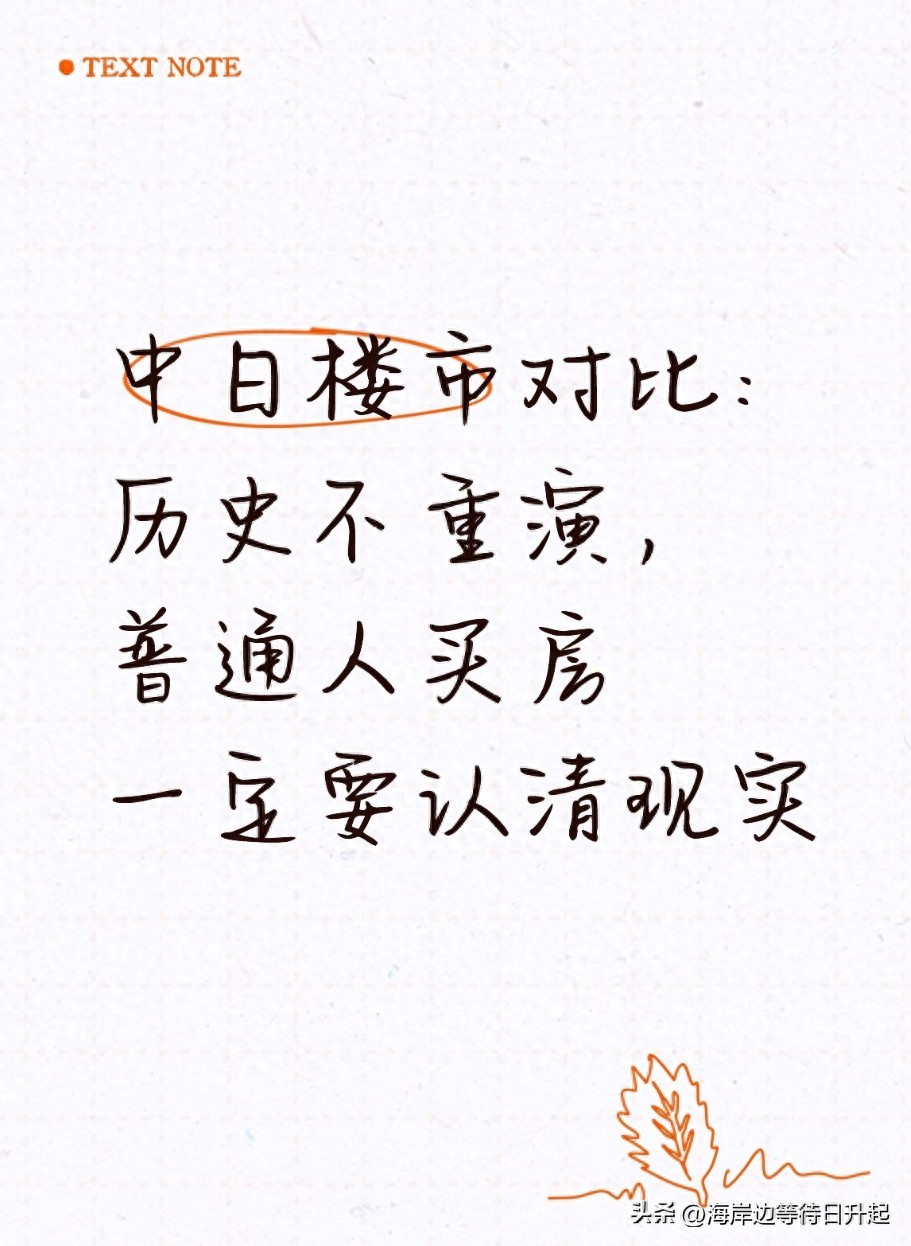 TEXT NOTE
中日楼市对比：
历史不重演，
普通人买房
一定要认清现实
头条 @海岸边等待日升起